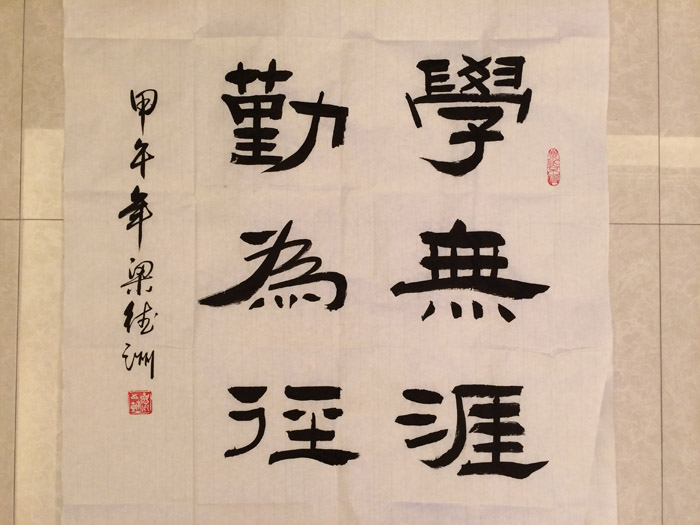 學無涯
勤為徑
甲午年梁德洲